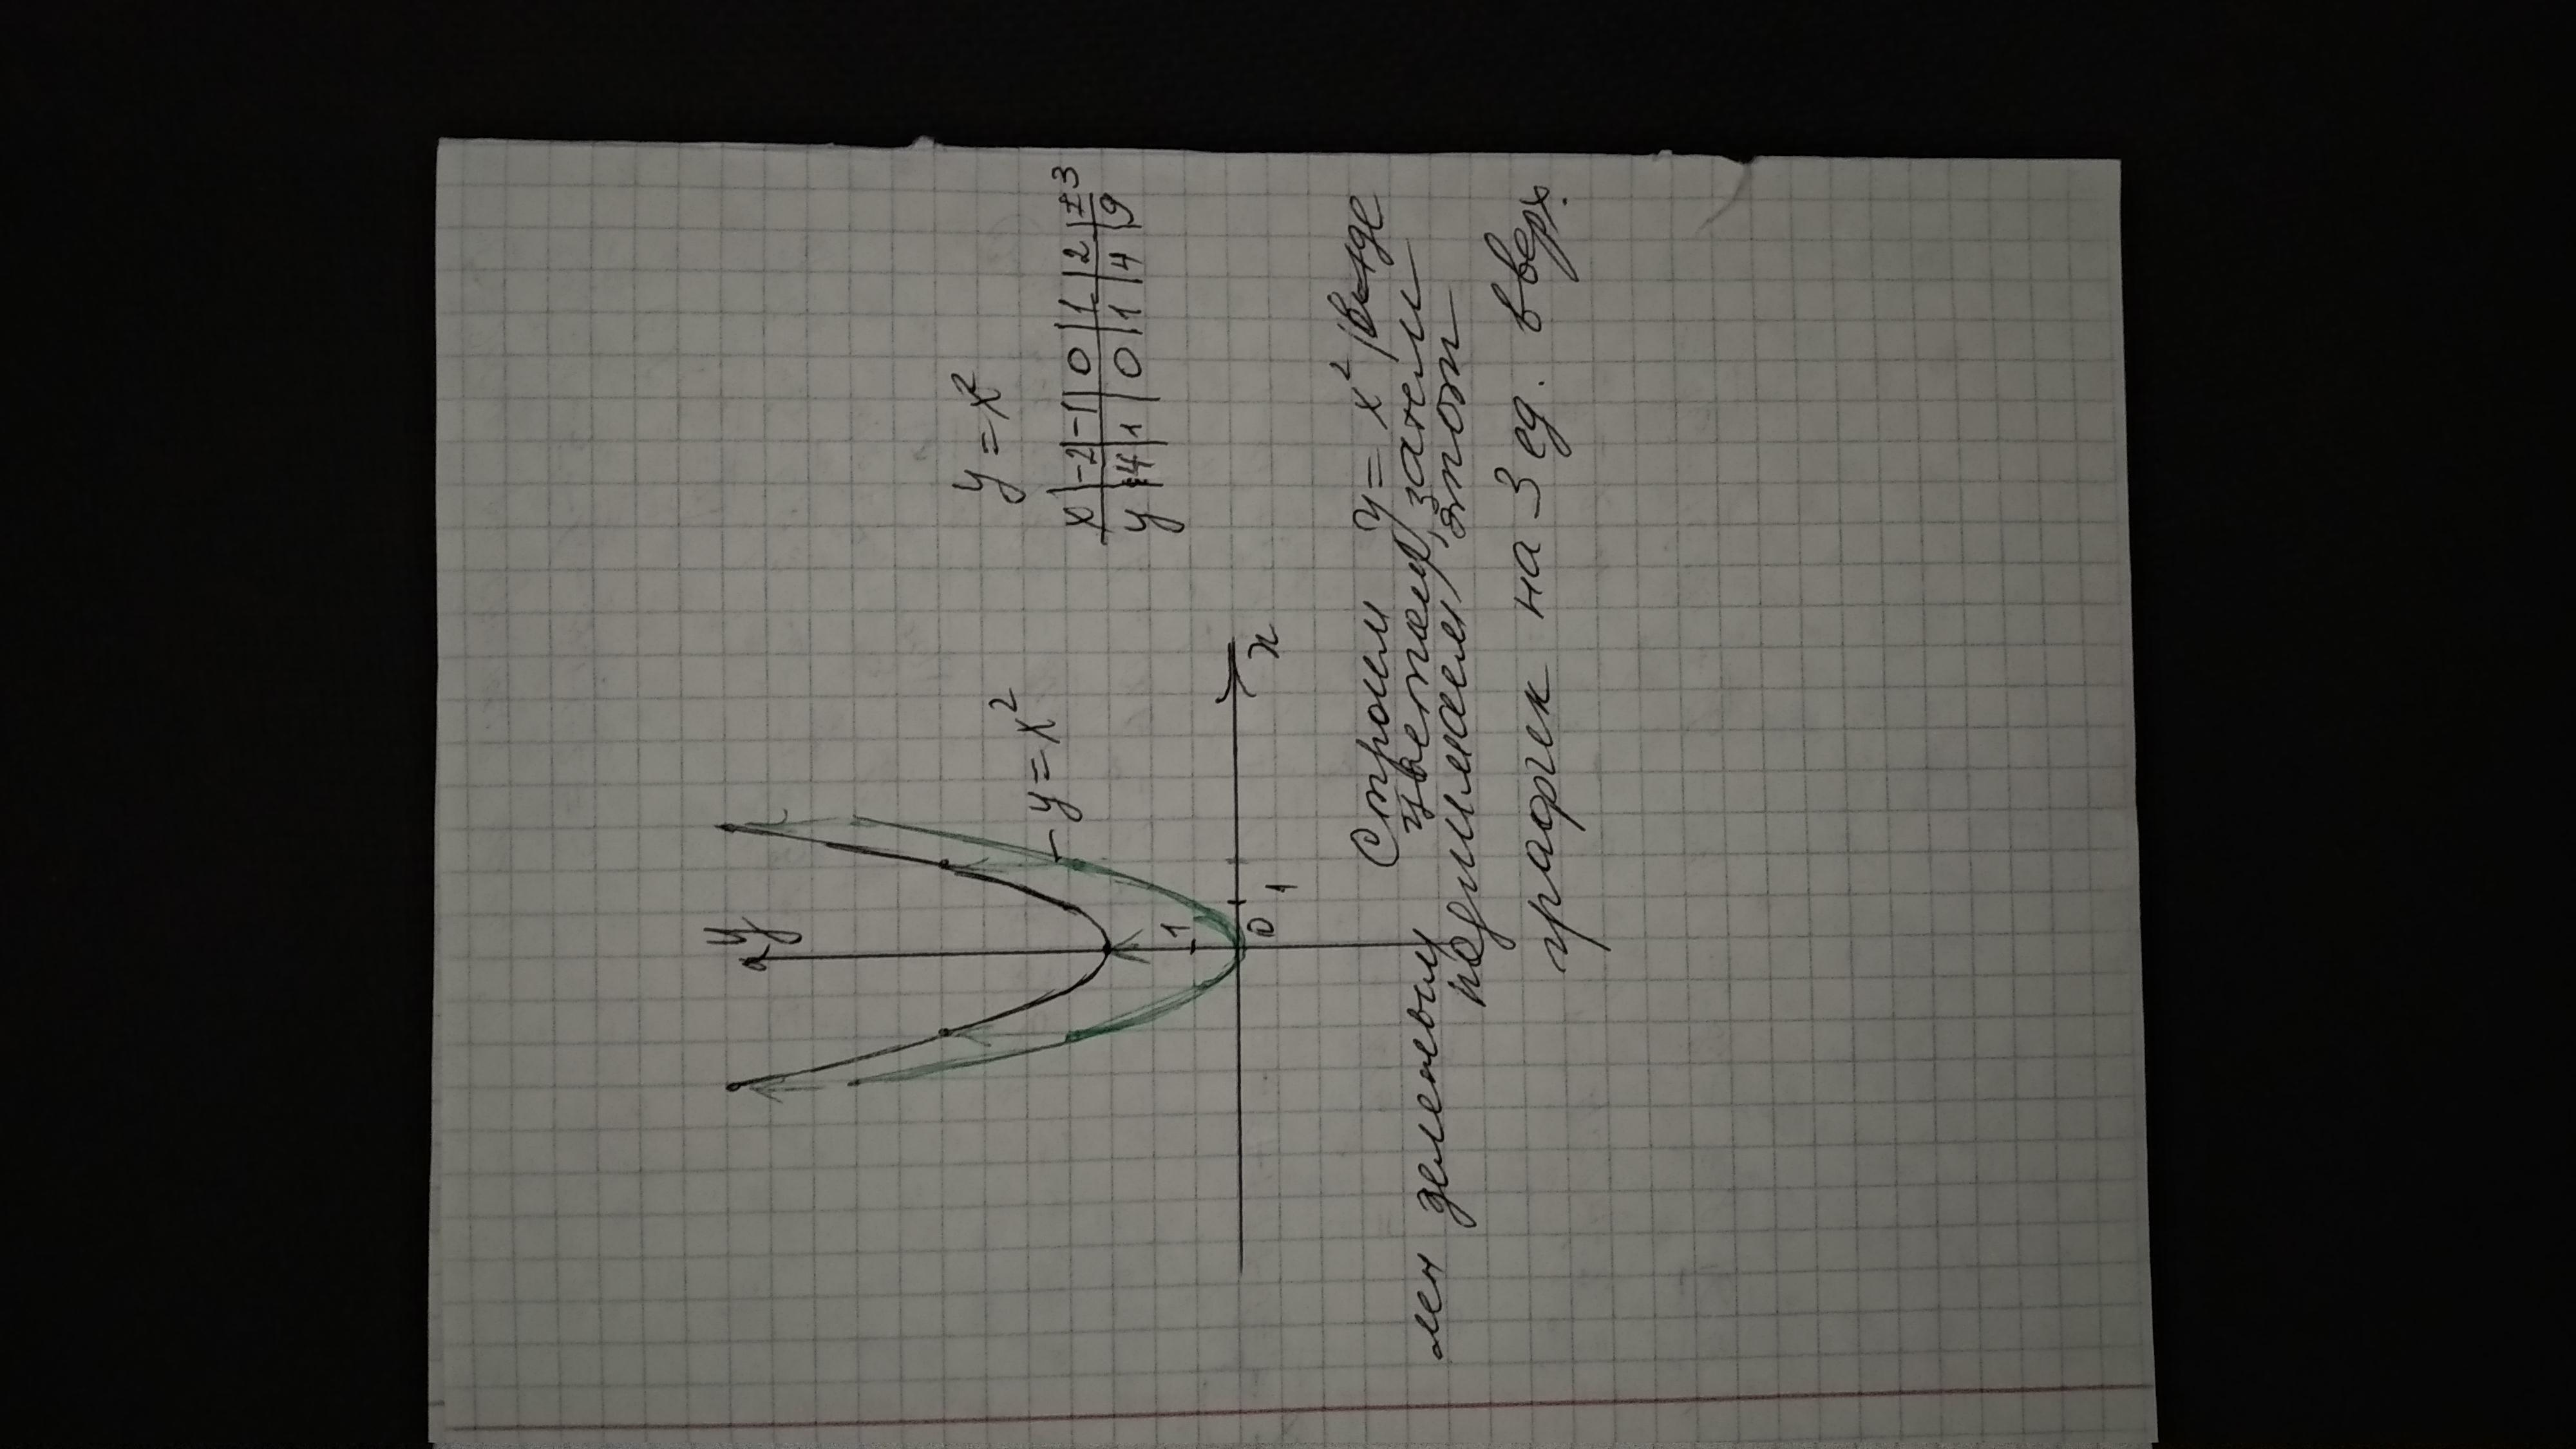 y = x²
x | -2 | -1 | 0 | 1 | 2 | ±3
y | 4 | 1 | 0 | 1 | 4 | 9
y
y = x²
1
0
1
x
Строим y = x²
цветом, затем
зеленым
поднимаем этот
график на 3 ед. вверх.